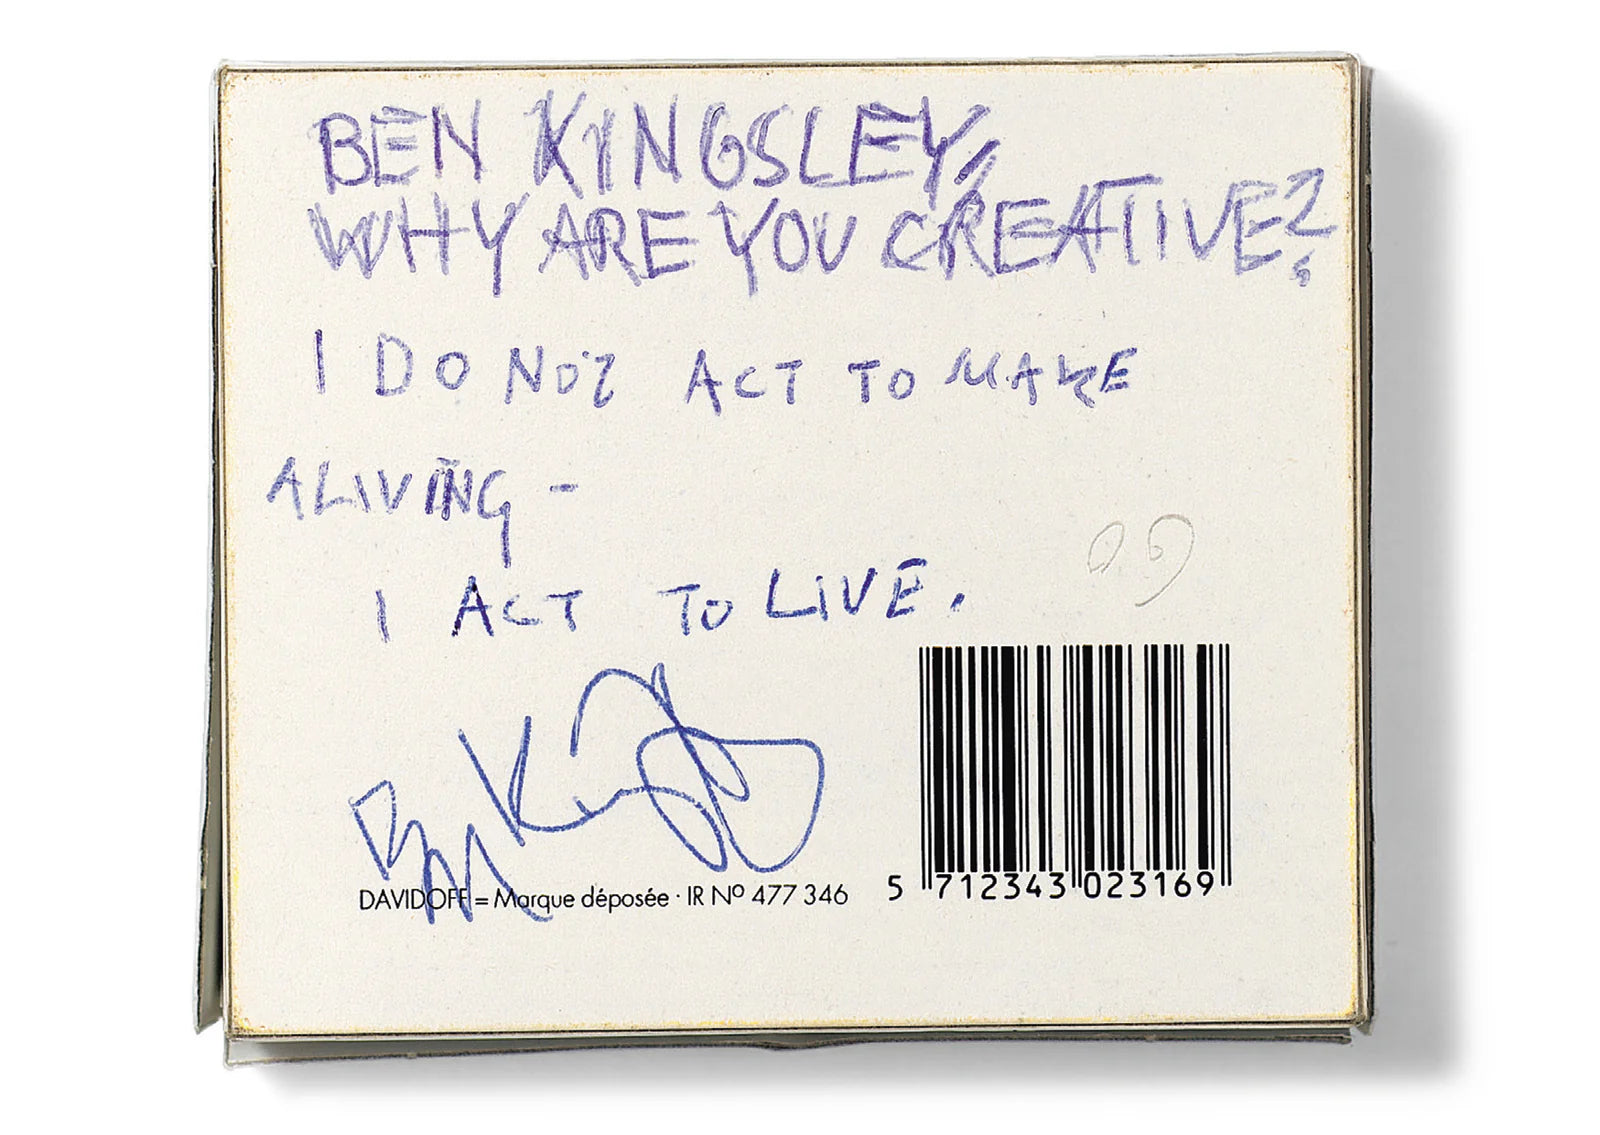 BEN KINGSLEY,
WHY ARE YOU CREATIVE?
I DO NOT ACT TO MAKE
A LIVING -
I ACT TO LIVE.
Ben Kingsley
DAVIDOFF = Marque déposée · IR Nº 477 346
5 712343 023169